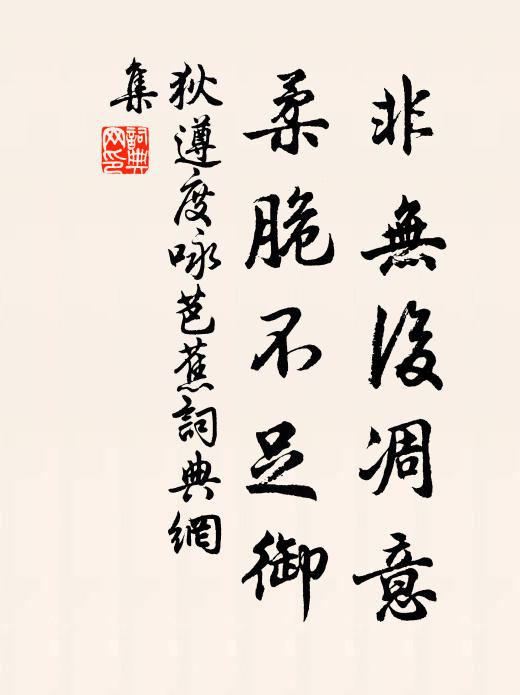 非無後凋意
柔脆不足御
狄遵度咏芭蕉詞典網
集
詞典網印